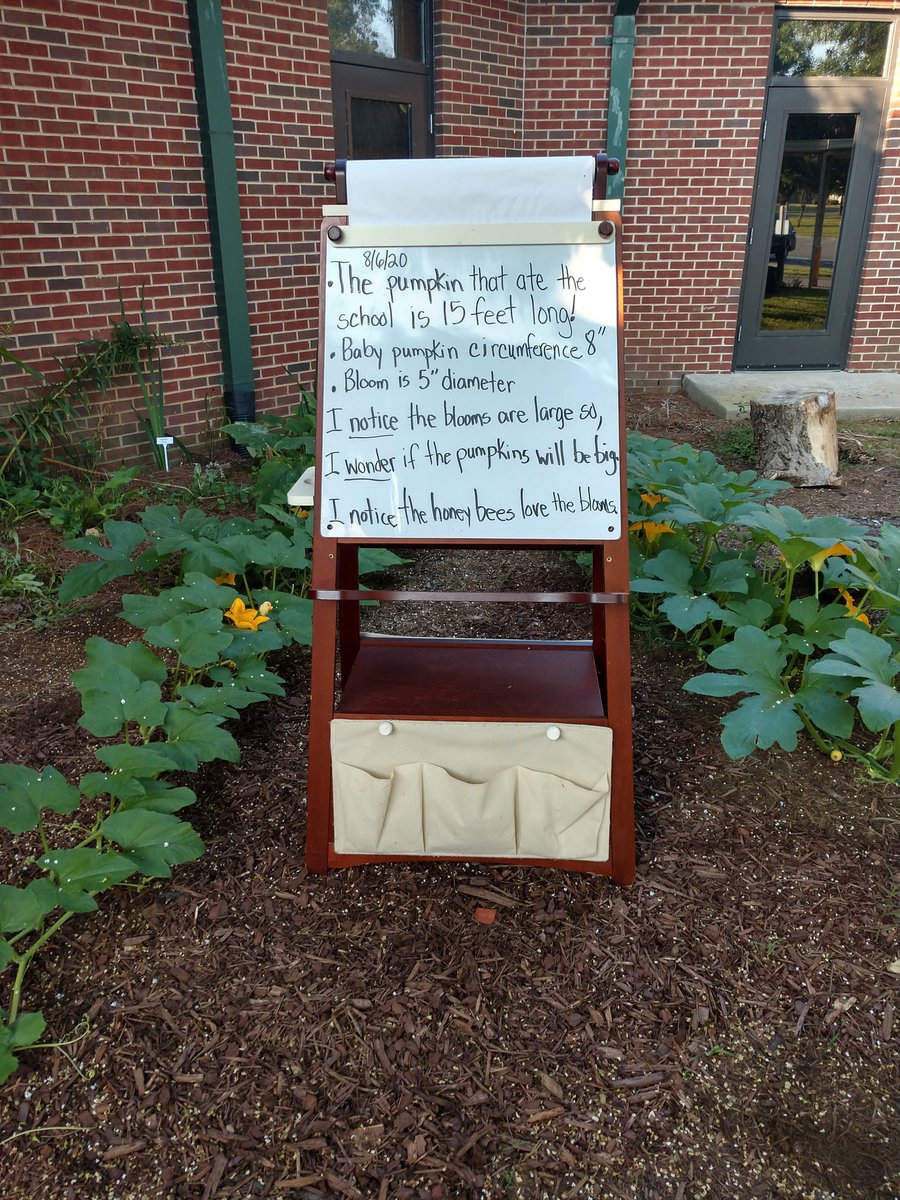 8/6/20
• The pumpkin that ate the
school is 15 feet long!
• Baby pumpkin circumference 8"
• Bloom is 5" diameter
I notice the blooms are large so,
I wonder if the pumpkins will be big.
I notice the honey bees love the blooms.